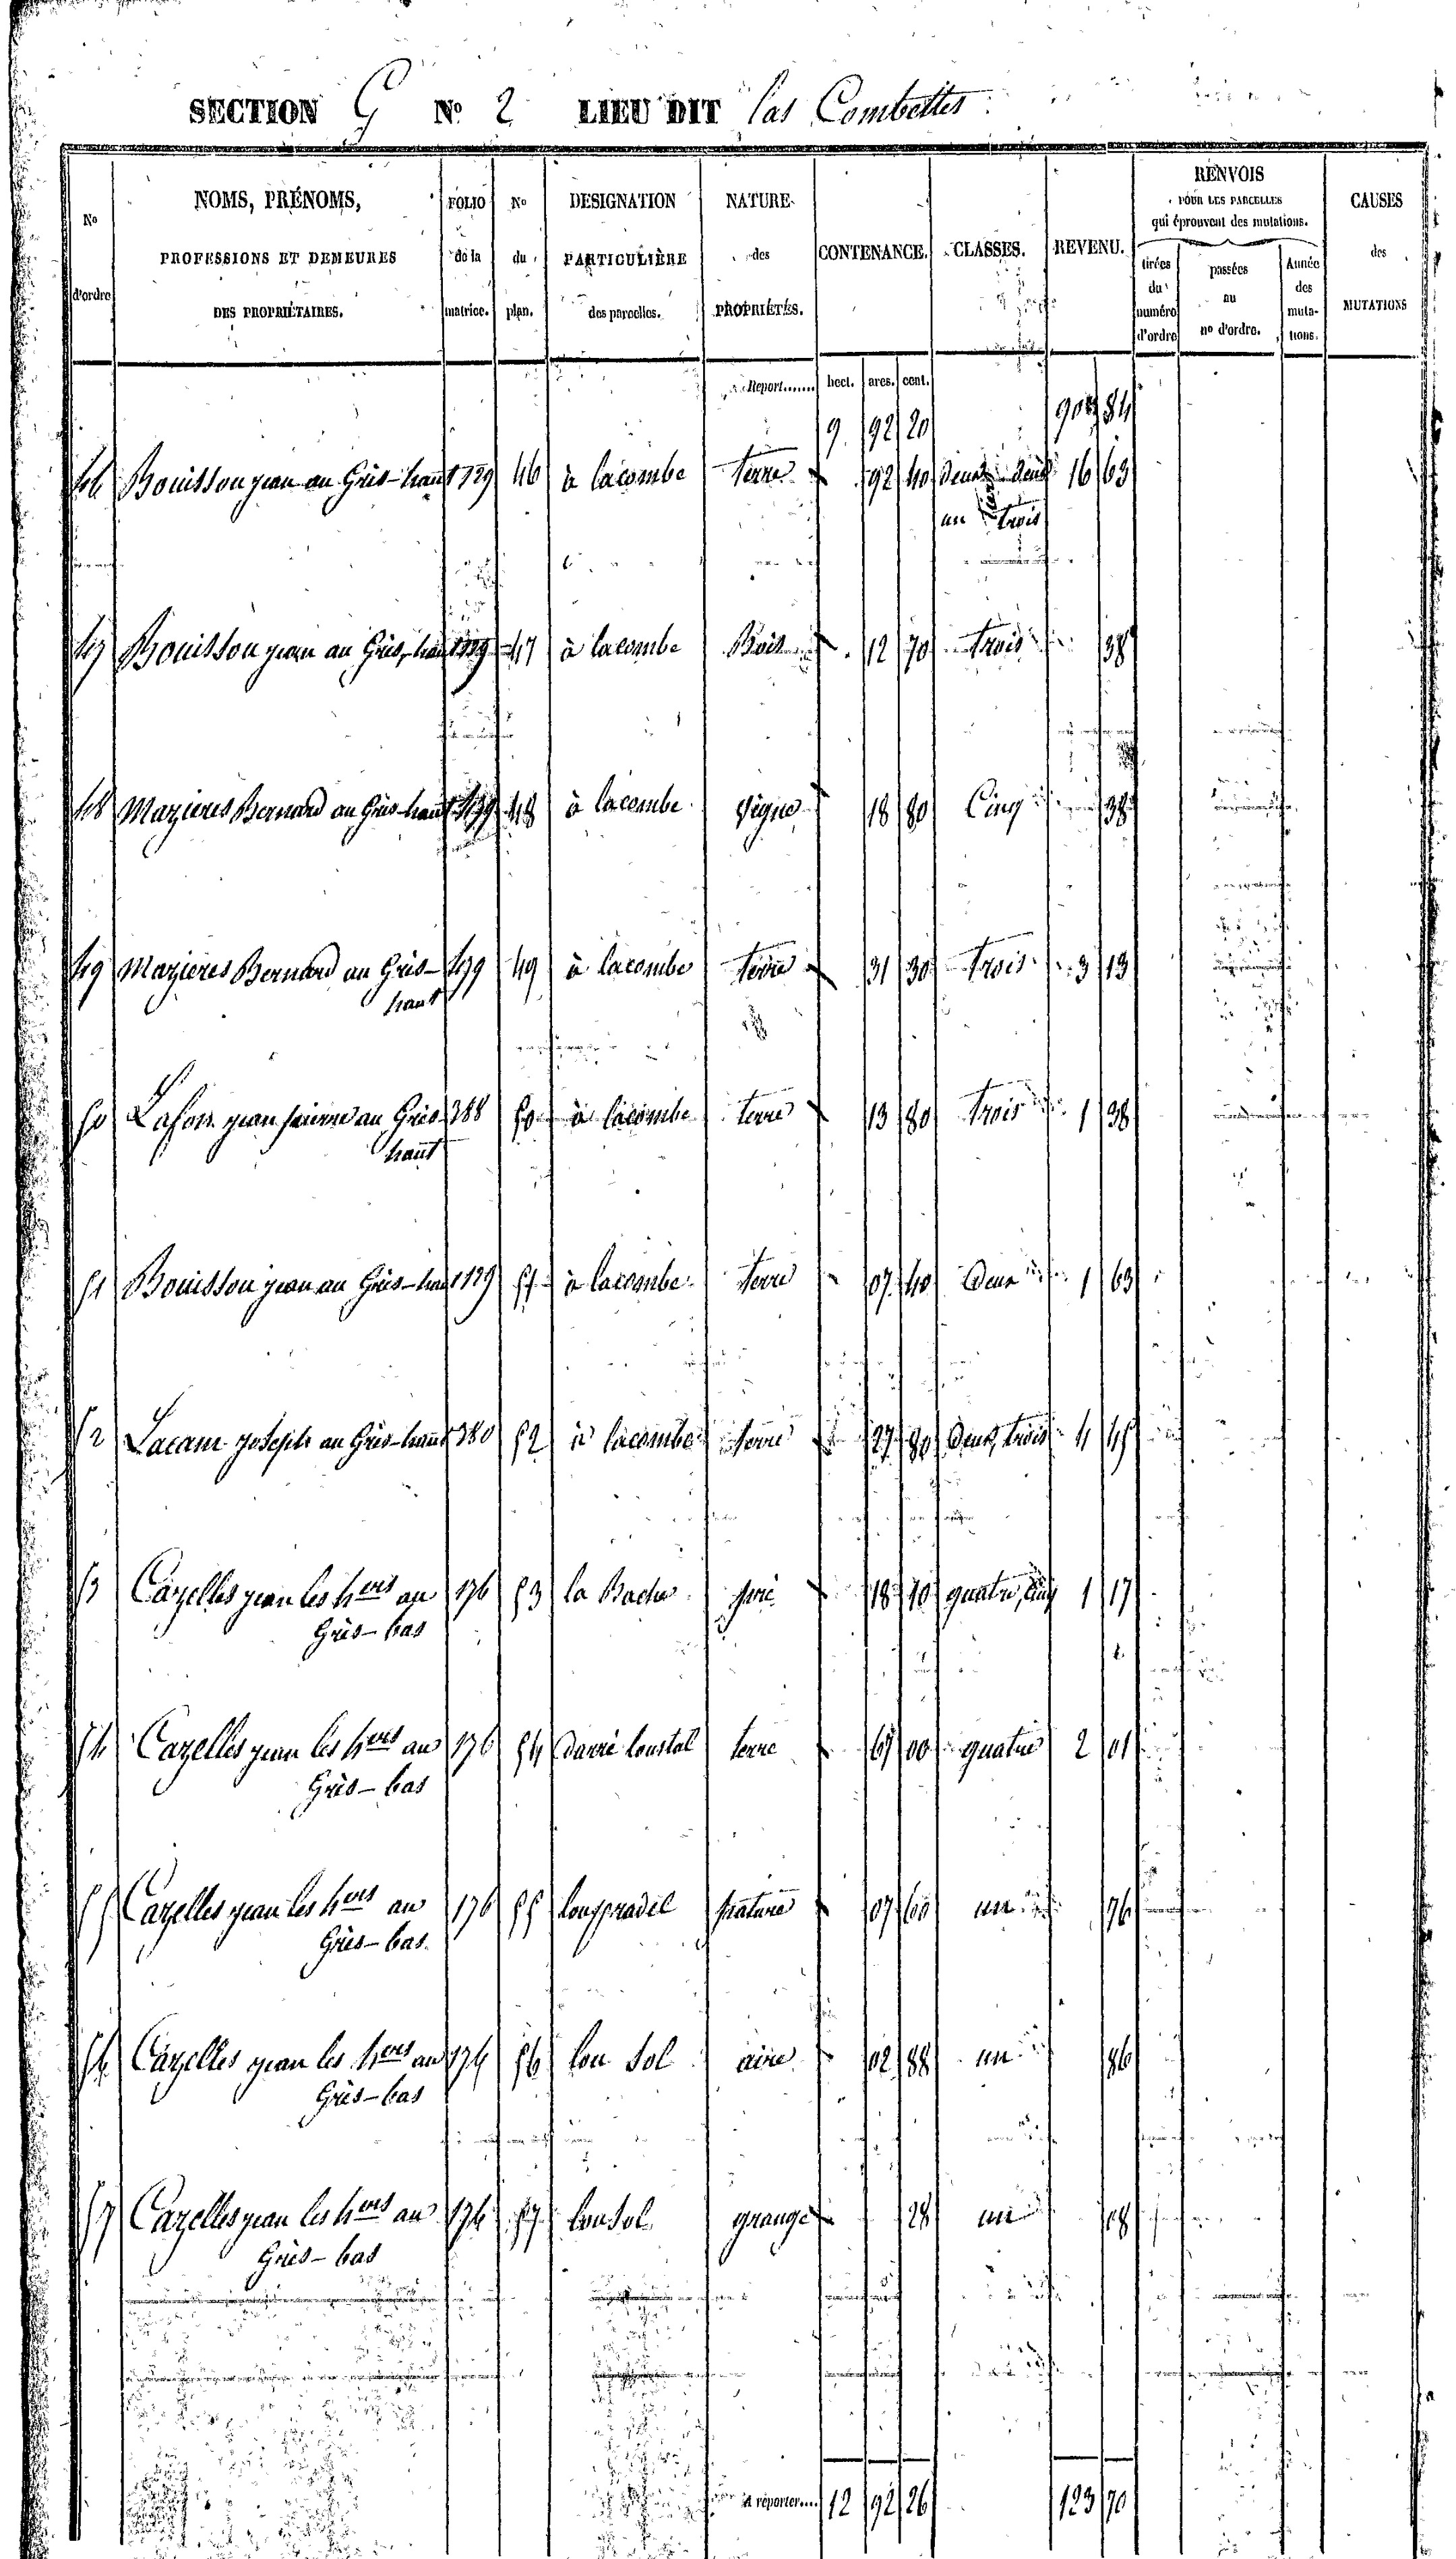 SECTION G No 2 LIEU DIT las Combettes
No d'ordre
NOMS, PRÉNOMS, PROFESSIONS ET DEMEURES DES PROPRIÉTAIRES.
FOLIO de la matrice.
No du plan.
DESIGNATION PARTICULIÈRE des parcelles.
NATURE des PROPRIÉTÉS.
CONTENANCE.
CLASSES.
REVENU.
RENVOIS POUR LES PARCELLES qui éprouvent des mutations.
tirées du numéro d'ordre
passées au no d'ordre.
Année des mutations.
CAUSES des MUTATIONS
Report....... hect. ares. cent.
9 92 20 84
46 Bouisson jean au Grès-haut 129 46 à lacombe terre 92 40 deux 16 63
un trois
47 Bouisson jean au Grès-haut 129 47 à lacombe Bois 12 70 trois 38
48 Mazieres Bernard au Grès-haut 439 48 à lacombe vigne 18 80 Cinq 38
49 Mazieres Bernard au Grès- 439 49 à lacombe terre 31 30 trois 3 13
haut
50 Lafon jean au Grès 388 50 à lacombe terre 13 80 trois 1 38
haut
51 Bouisson jean au Grès-haut 129 51 à lacombe terre 07 40 deux 1 63
52 Lacam joseph au Grès-haut 380 52 à lacombe terre 27 80 deux, trois 4 45
53 Cazelles jean les hers au 176 53 la pré 18 70 quatre, cinq 1 17
Grès-bas
54 Cazelles jean les hers au 176 54 darré loustal terre 67 00 quatre 2 01
Grès-bas
55 Cazelles jean les hers au 176 55 lou pradel pature 07 60 un 76
Grès-bas.
56 Cazelles jean les hers au 176 56 lou Sol aire 02 88 un 86
Grès-bas
57 Cazelles jean les hers au 176 57 lou Sol grange 28 un 08
Grès-bas
A reporter.... 12 92 26 123 70